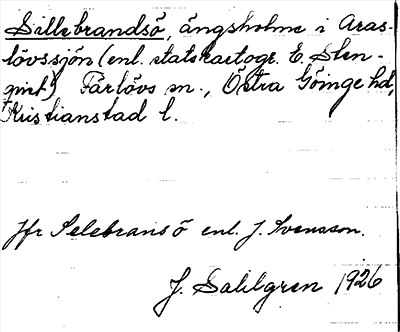 Sillebrandsö, ängsholme i Aras-
lövssjön (enl. statskartogr. E. Sten-
qvist) Färlövs sn., Östra Göinge hd,
Kristianstad l.
Jfr Selebransö enl. J. Svensson.
J. Sahlgren 1926